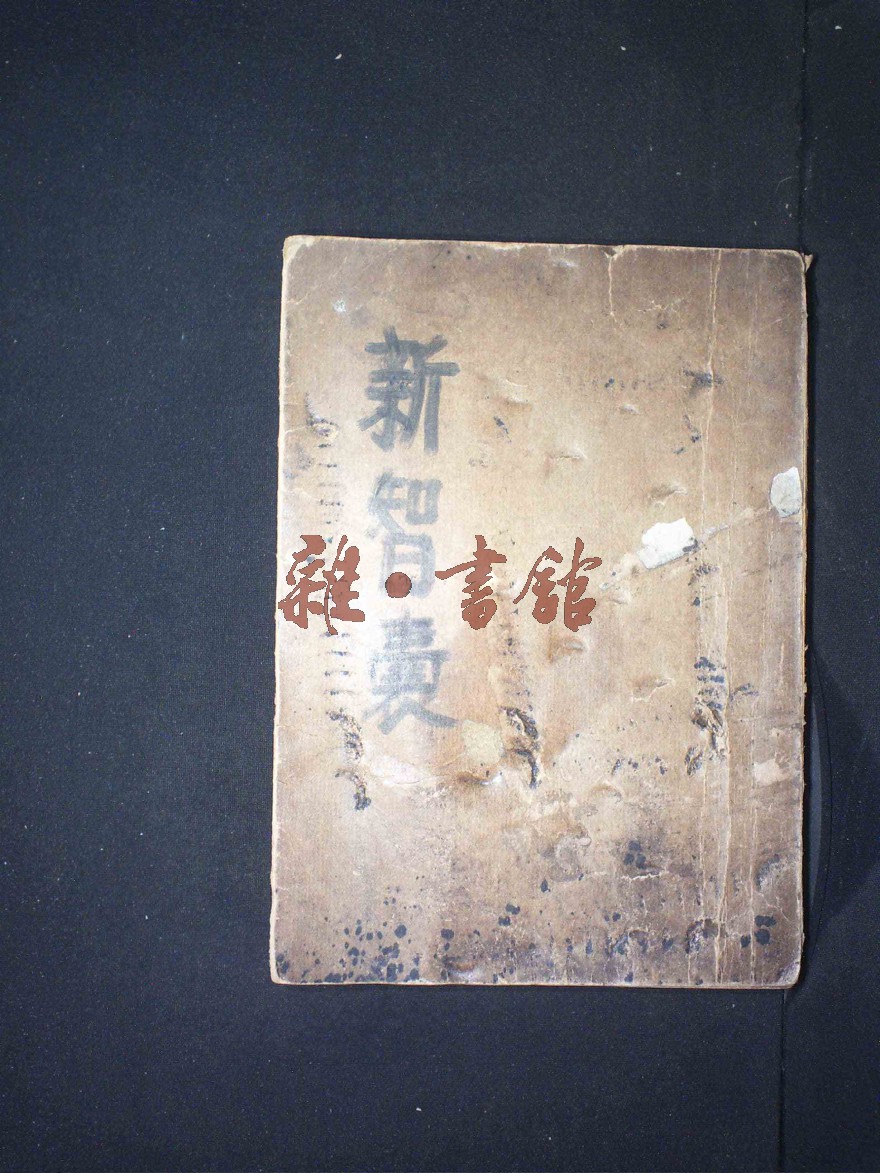 新智囊
雜·書館